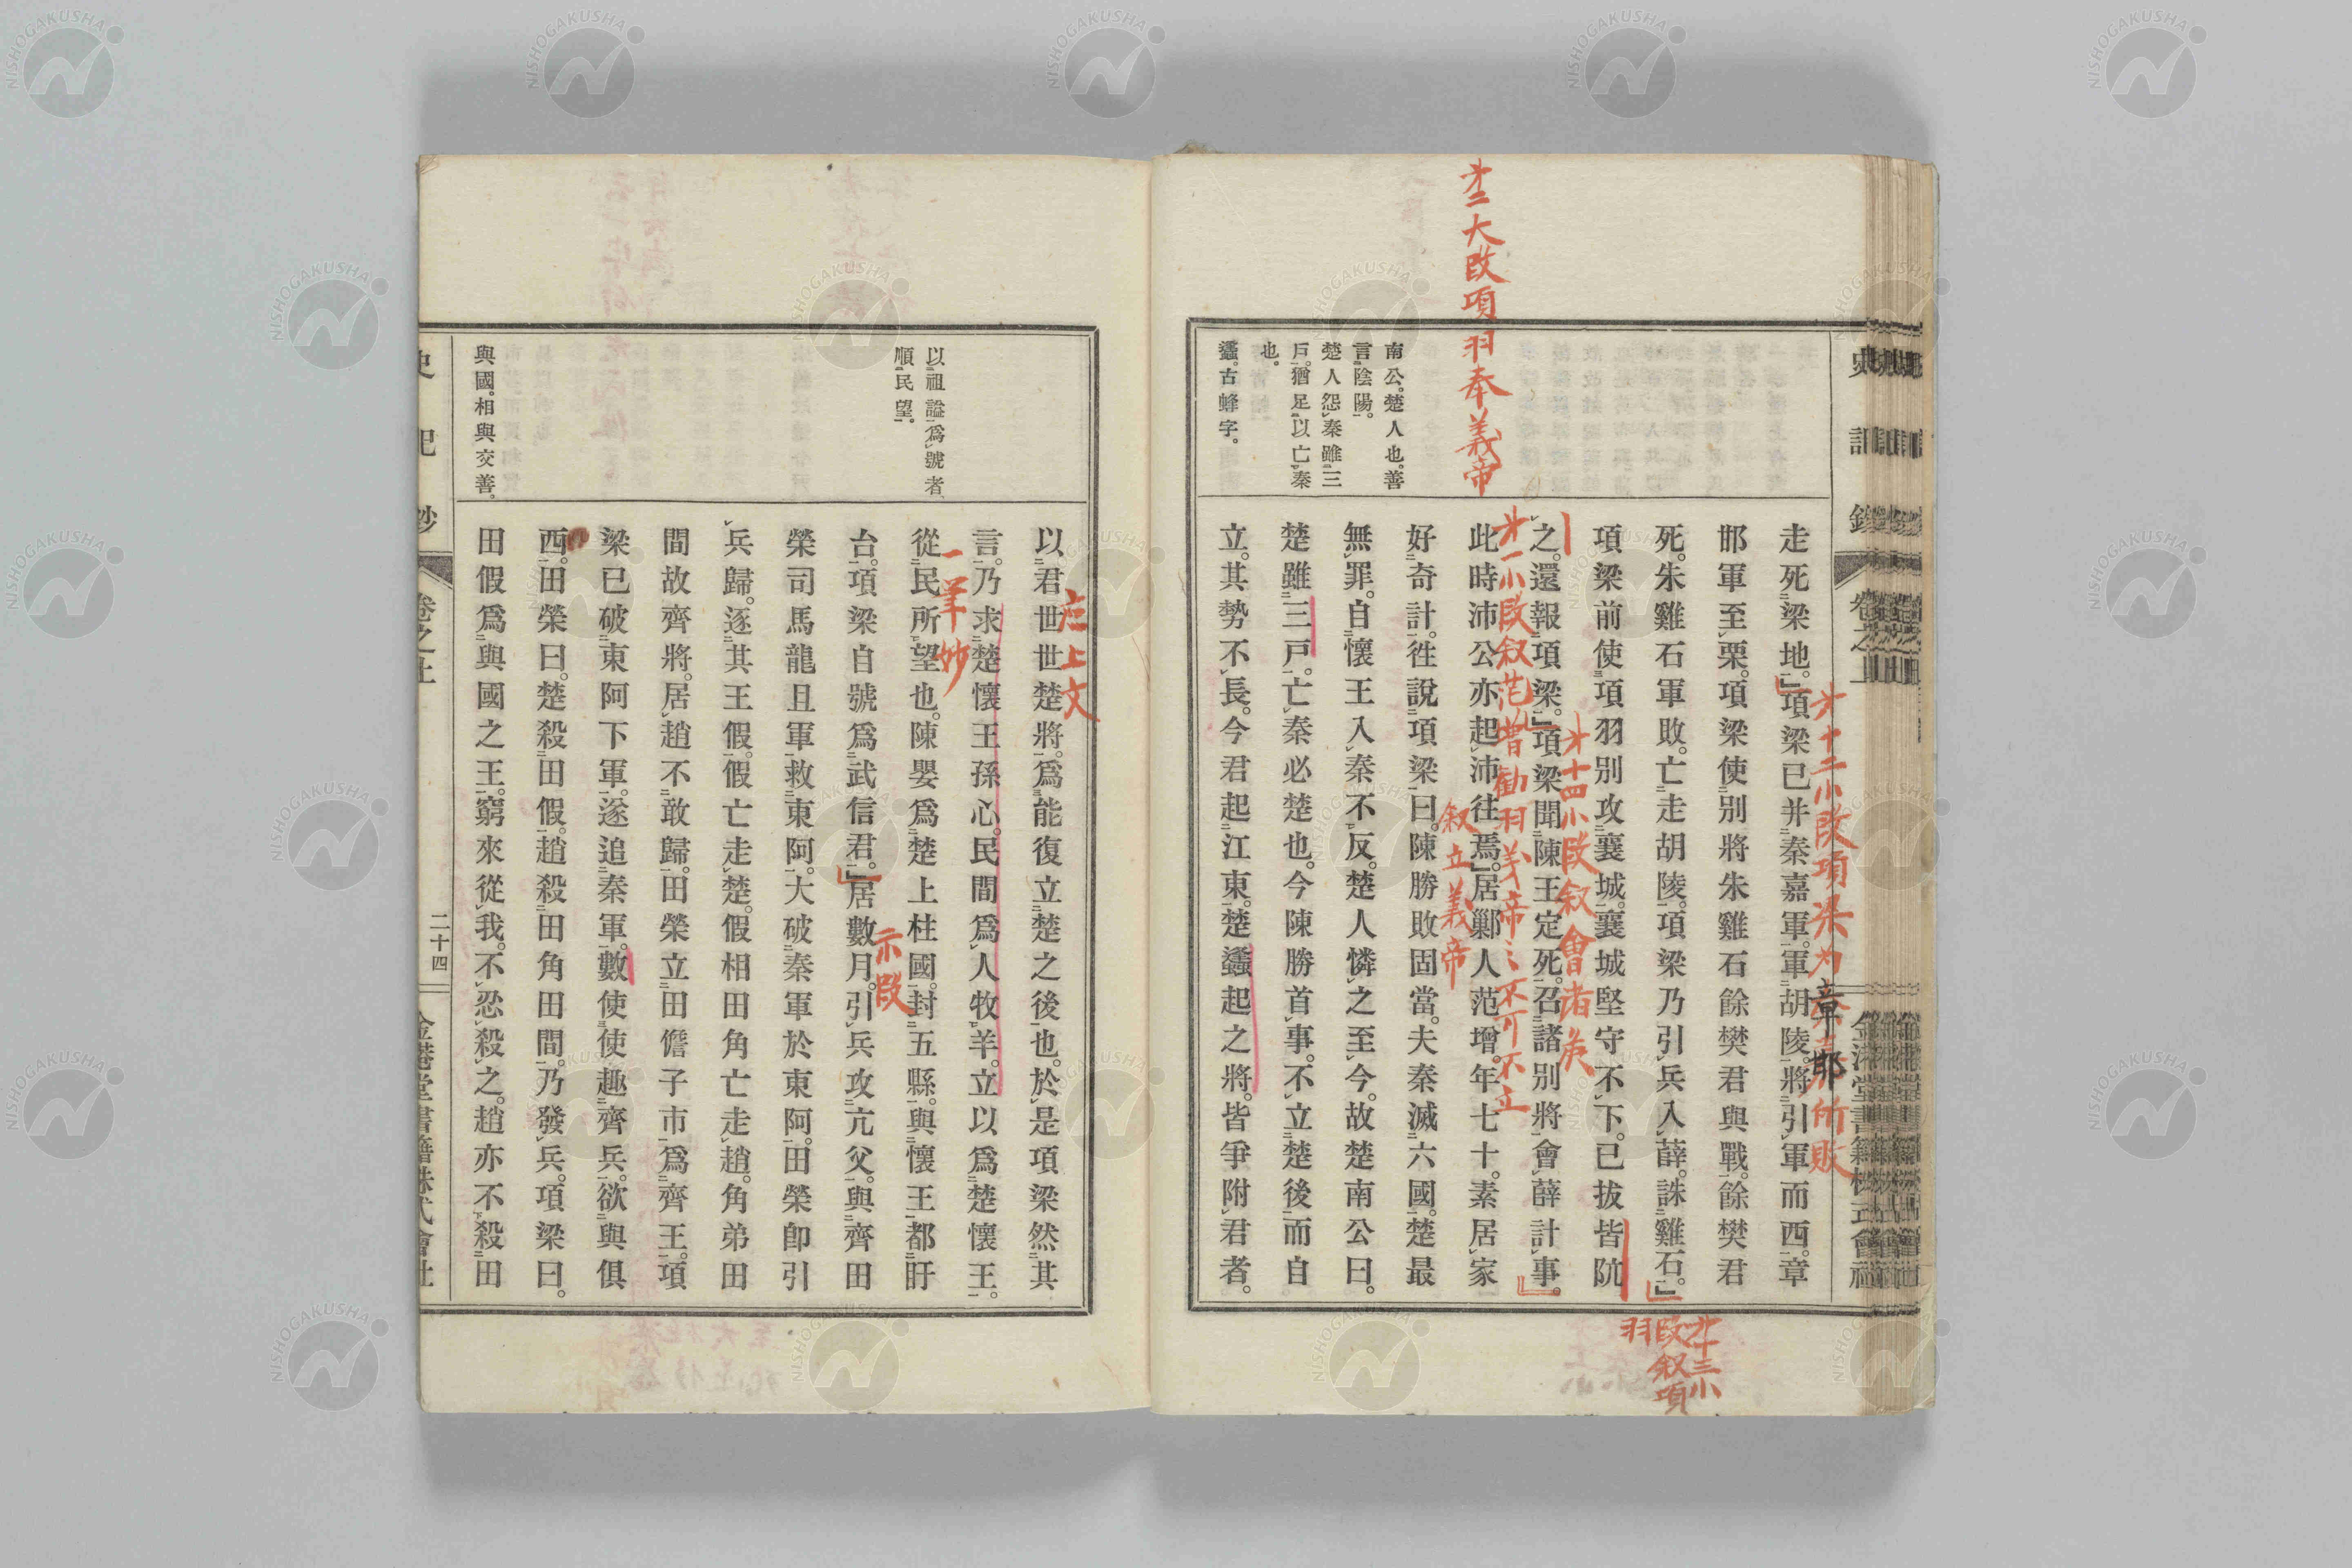 第二大段項羽奉義帝
南公。楚人也。善
言陰陽。
楚人怨秦雖三
戸。猶足以亡秦
也。
蠭。古蜂字。
走死梁地。」項梁已并秦嘉軍。軍胡陵。將引軍而西。章
邯軍至栗。項梁使別將朱雞石餘樊君與戰。餘樊君
死。朱雞石軍敗。亡走胡陵。項梁乃引兵入薛。誅雞石。」
項梁前使項羽別攻襄城。襄城堅守不下。已拔皆阬
之。還報項梁。」項梁聞陳王定死。召諸別將會薛計事。
此時沛公亦起沛往焉。」居鄛人范增。年七十。素居家
好奇計。往說項梁曰。陳勝敗固當。夫秦滅六國。楚最
無罪。自懷王入秦不反。楚人憐之至今。故楚南公曰。
楚雖三戸。亡秦必楚也。今陳勝首事。不立楚後而自
立。其勢不長。今君起江東。楚蠭起之將。皆爭附君者。
第十二小段項梁为
章邯
所敗
第十三小
段叙項
羽
第十四小段叙會諸矦
第一小段叙范增勸羽義帝之不可不立
叙立義帝
以祖謚爲號者
順民望。
與國。相與交善。
以君世世楚將。爲能復立楚之後也。於是項梁然其
言。乃求楚懷王孫心。民間爲人牧羊。立以爲楚懷王。
從民所望也。陳嬰爲楚上柱國。封五縣。與懷王都盱
台。項梁自號爲武信君。」居數月。引兵攻亢父。與齊田
榮司馬龍且軍救東阿。大破秦軍於東阿。田榮卽引
兵歸。逐其王假。假亡走楚。假相田角亡走趙。角弟田
間故齊將。居趙不敢歸。田榮立田儋子市爲齊王。項
梁已破東阿下軍。遂追秦軍。數使使趣齊兵。欲與俱
西。田榮曰。楚殺田假。趙殺田角田間。乃發兵。項梁曰。
田假爲與國之王。窮來從我。不忍殺之。趙亦不殺田
上文
一筆妙
示段
卷之上
二十四
金港堂書籍株式會社